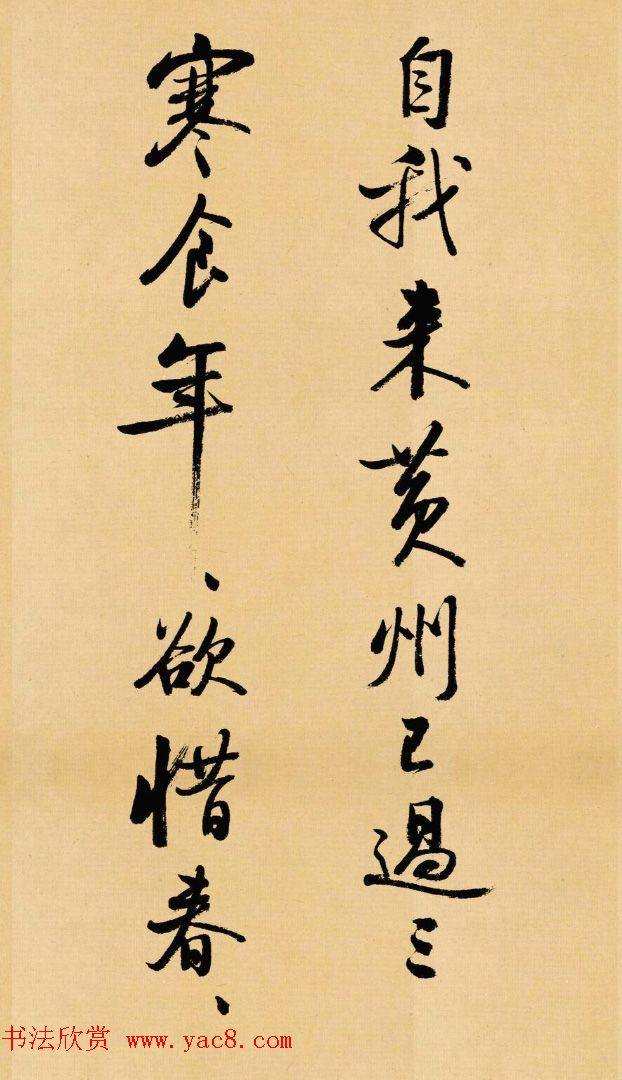 自我来黄州已過三
寒食年、欲惜春、
书法欣赏 www.yac8.com